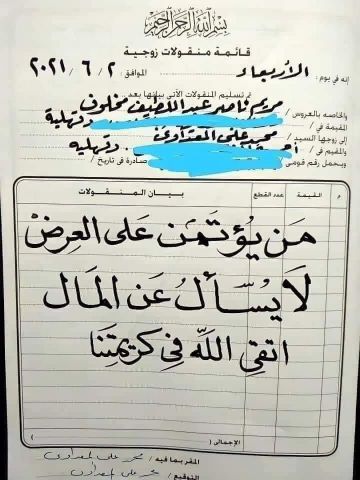 بسم الله الرحمن الرحيم
قائمة منقولات زوجية
إنه في يوم : الأربعاء الموافق : ٢ / ٦ / ٢٠٢١
تم تسليم المنقولات الآتي بيانها بعد
والخاصه بالعروس / مريم ناصر عبد اللطيف مخلوف
المقيمة في / دقهلية
إلى زوجها السيد / محمد علي المعداوي
والمقيم في / دقهليه
ويحمل رقم قومي صادرة في تاريخ /
م القيمة عدد القطع بيان المنقولات
مَن يُؤتَمَن على العِرضْ
لَا يُسَّألُ عَن المَال
اتقِ اللَّه في كريمتِنَا
الإجمالي ( )
المقر بما فيه / محمد على المعداوى
التوقيع / محمد على المعداوى